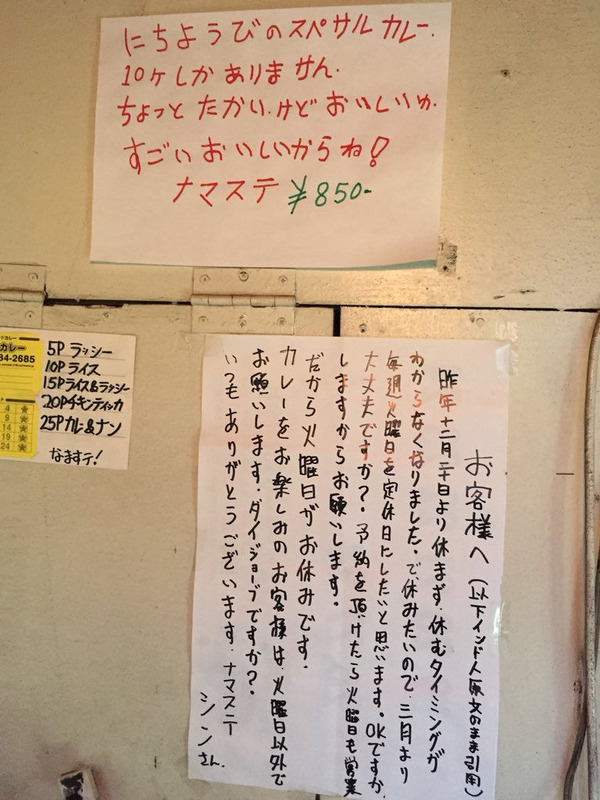 にちようびのスペサルカレー.
10ケしかありません.
ちょっとたかい.けどおいしいゅ.
すごいおいしいからね!
ナマステ ¥850-
カレー
34-2685
4 ★
9 ★
14 ★
19 ★
24 ★
5P ラッシー
10P ライス
15Pライス&ラッシー
20Pチキンティッカ
25Pカレー&ナン
なますテ!
お客様へ(以下インド人原文のまま引用)
昨年十二月二十日より休まず.休むタイミングが
わからなくなりました.で休みたいので.三月より
毎週火曜日を定休日にしたいと思います。OKですか.
大丈夫ですか?.予約を頂けたら火曜日も営業
しますからお願いします.
だから火曜日がお休みです.
カレーをお楽しみのお客様は.火曜日以外で
お願いします.ダイジョーブですか?
いつもありがとうございます.ナマステ
シンさん.